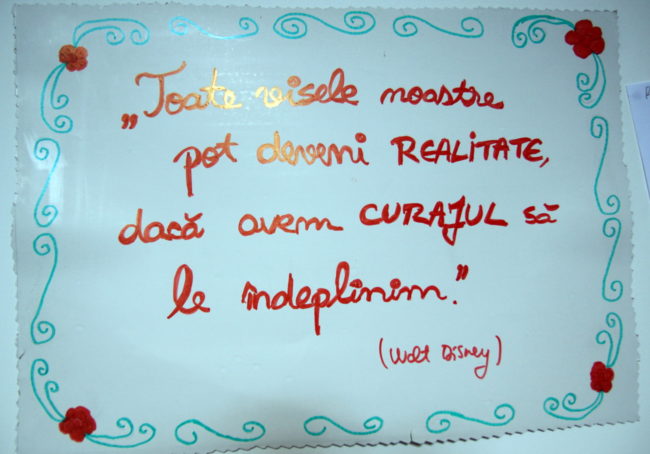 „Toate visele noastre
pot deveni REALITATE,
dacă avem CURAJUL să
le îndeplinim.”
(Walt Disney)